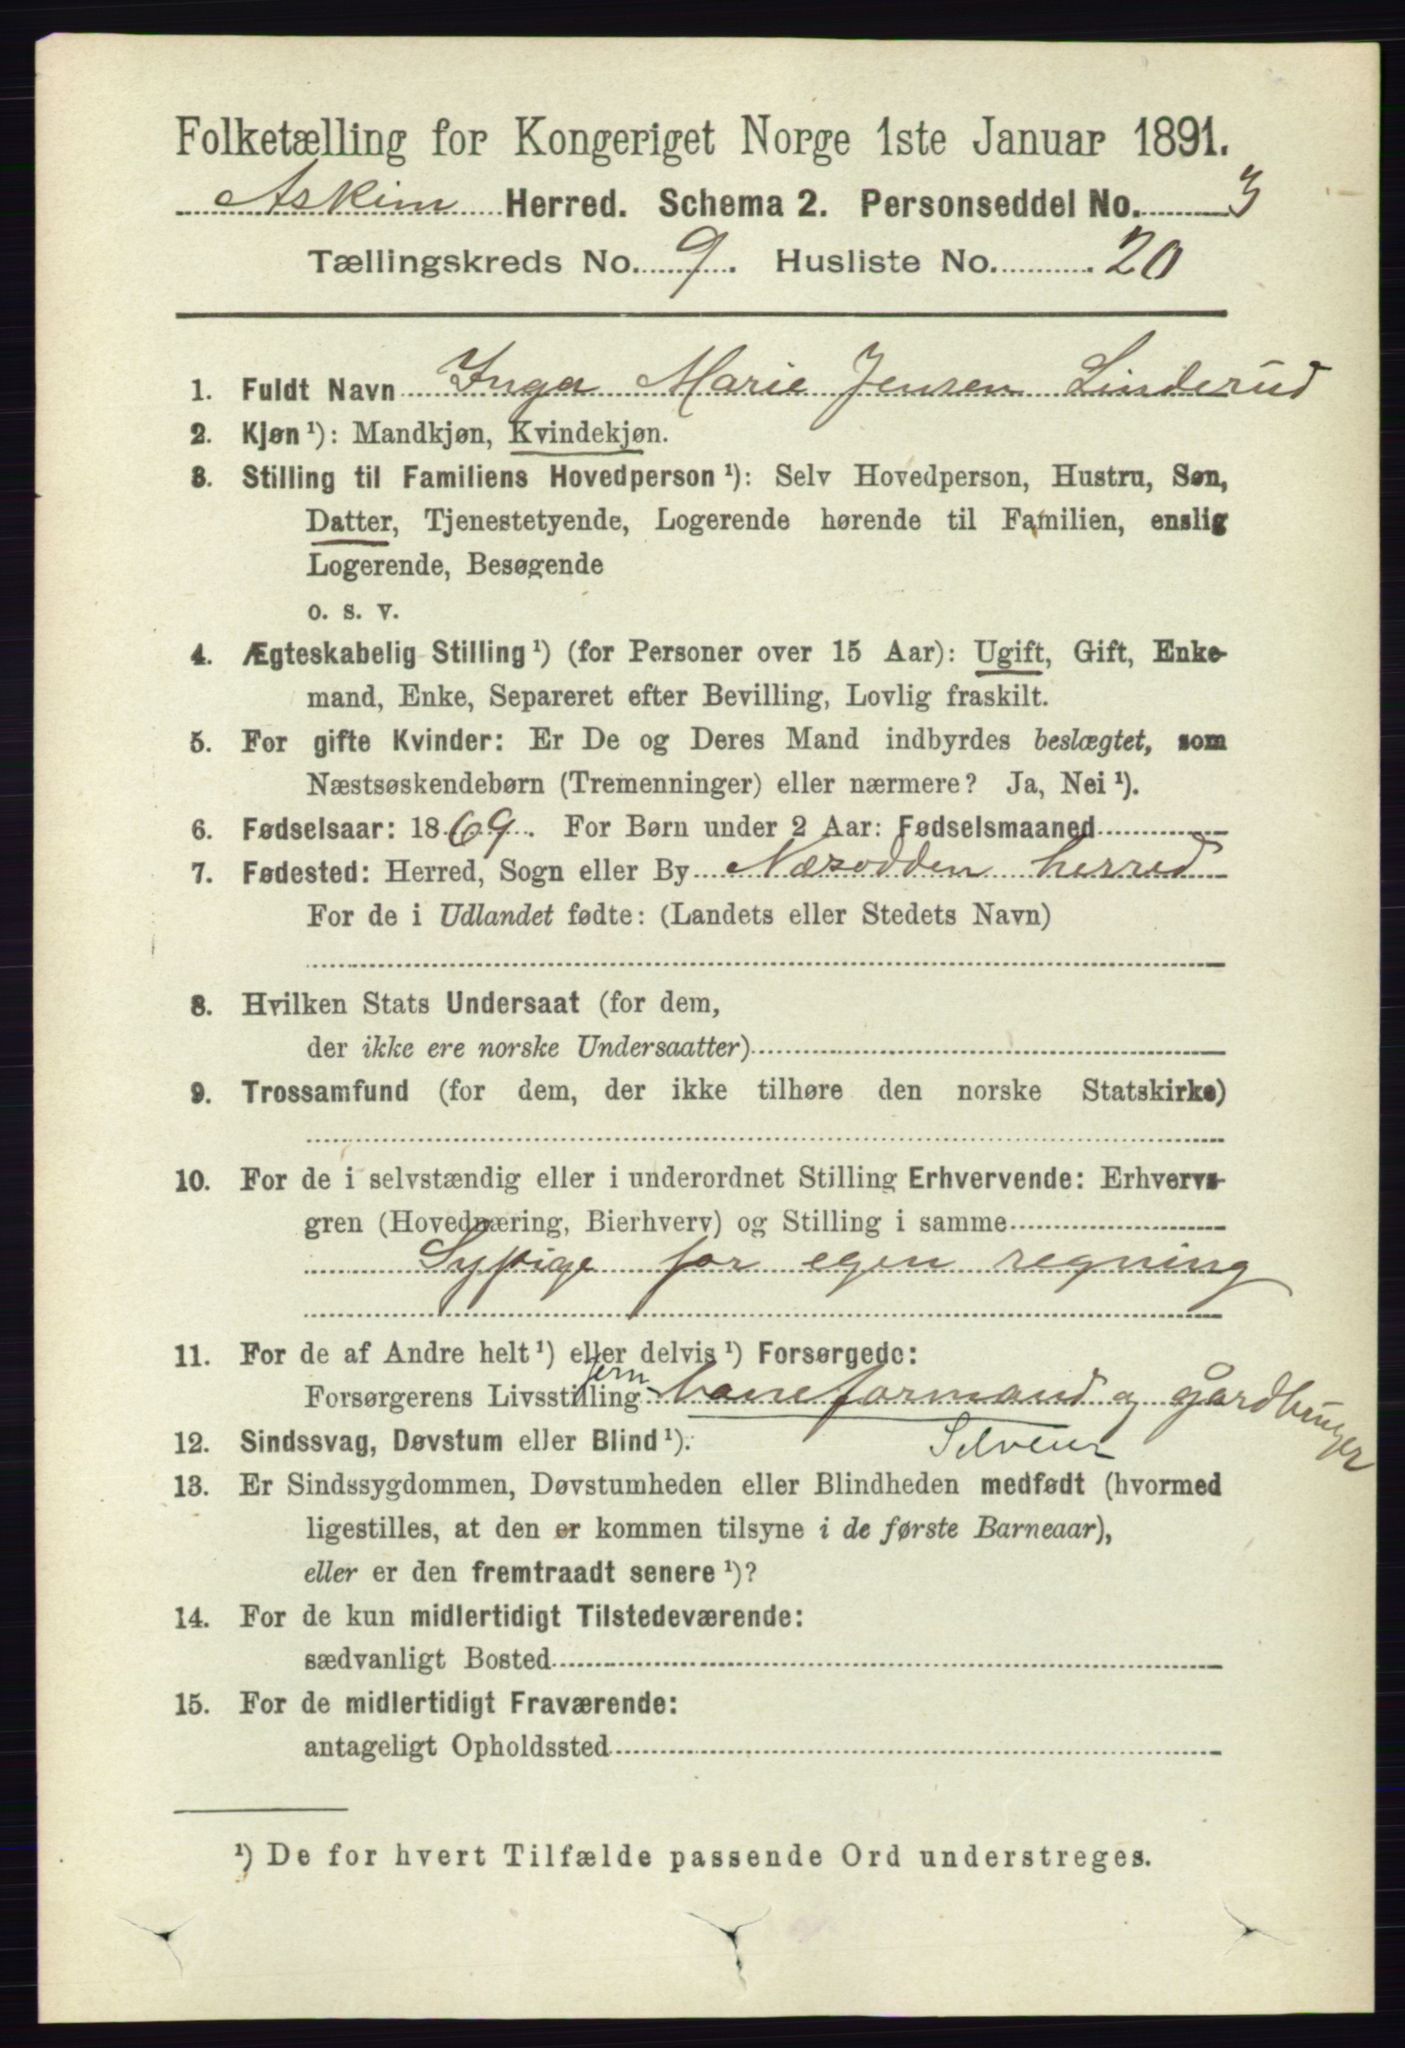 Folketælling for Kongeriget Norge 1ste Januar 1891.
Askim Herred. Schema 2. Personseddel No. 3
Tællingskreds No. 9. Husliste No. 20
1. Fuldt Navn Inga Marie Jensen Linderud
2. Kjøn ¹): Mandkjøn, Kvindekjøn.
3. Stilling til Familiens Hovedperson ¹): Selv Hovedperson, Hustru, Søn,
Datter, Tjenestetyende, Logerende hørende til Familien, enslig
Logerende, Besøgende
o. s. v.
4. Ægteskabelig Stilling ¹) (for Personer over 15 Aar): Ugift, Gift, Enke-
mand, Enke, Separeret efter Bevilling, Lovlig fraskilt.
5. For gifte Kvinder: Er De og Deres Mand indbyrdes beslægtet, som
Næstsøskendebørn (Tremenninger) eller nærmere? Ja, Nei ¹).
6. Fødselsaar: 1869. For Børn under 2 Aar: Fødselsmaaned
7. Fødested: Herred, Sogn eller By Næsodden herred
For de i Udlandet fødte: (Landets eller Stedets Navn)
8. Hvilken Stats Undersaat (for dem,
der ikke ere norske Undersaatter)
9. Trossamfund (for dem, der ikke tilhøre den norske Statskirke)
10. For de i selvstændig eller i underordnet Stilling Erhvervende: Erhvervs-
gren (Hovednæring, Bierhverv) og Stilling i samme
Sypige for egen regning
11. For de af Andre helt ¹) eller delvis ¹) Forsørgede:
Forsørgerens Livsstilling jern-baneformand og gårdbruger
12. Sindssvag, Døvstum eller Blind ¹). Selveier
13. Er Sindssygdommen, Døvstumheden eller Blindheden medfødt (hvormed
ligestilles, at den er kommen tilsyne i de første Barneaar),
eller er den fremtraadt senere ¹)?
14. For de kun midlertidigt Tilstedeværende:
sædvanligt Bosted
15. For de midlertidigt Fraværende:
antageligt Opholdssted
¹) De for hvert Tilfælde passende Ord understreges.